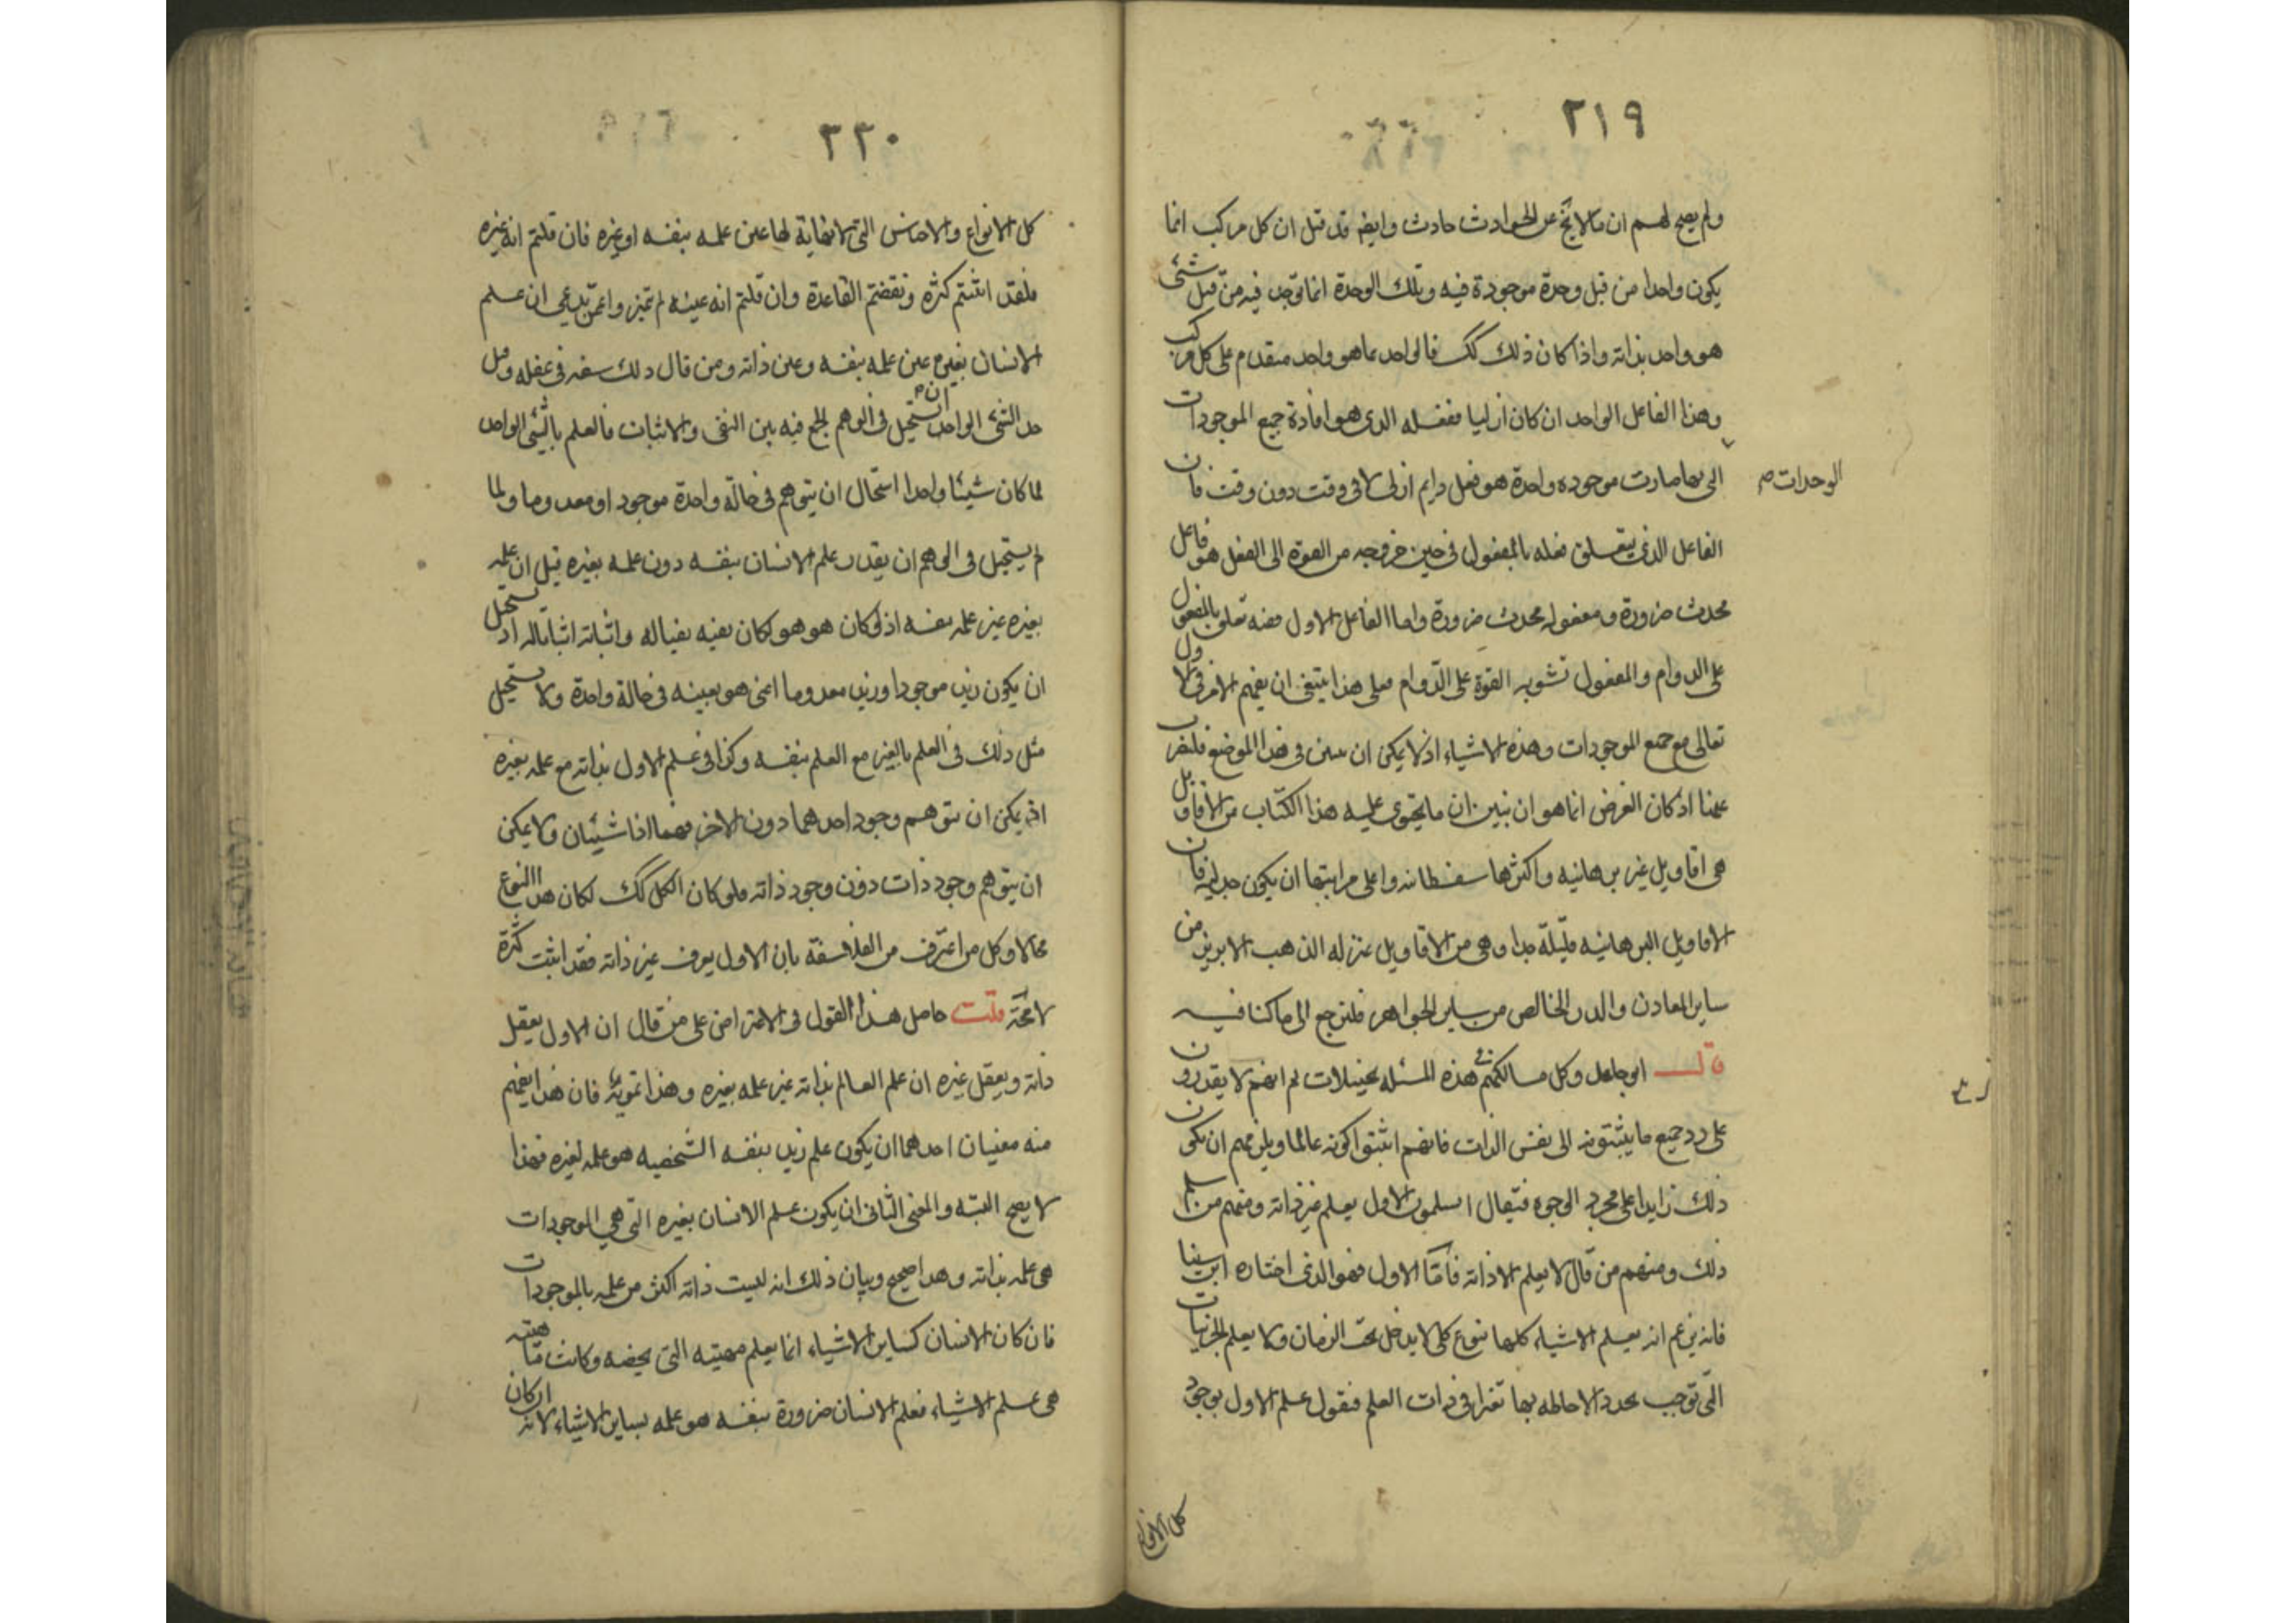 ٢١٩
ولم يصح لهم ان ما لا يخ عن الحوادث حادث وايضه قد قيل ان كل مركب انما
يكون واحدا من قبل وحدة موجودة فيه وتلك الوحدة انما توجد فيه من قبل شئ
هو واحد بذاته واذا كان ذلك كك فالواحد بما هو واحد متقدم على كل مركب
وهذا الفاعل الواحد ان كان ازليا ففعله الذى هو افادة جميع الموجودات
الوحدات صح
التى بها صارت موجوده واحدة هو فعل دايم ازلى لا فى وقت دون وقت فان
الفاعل الذى يتعلق فعله بالمفعول فى حين خروجه من القوة الى الفعل هو فاعل
محدث ضرورة ومفعوله محدث ضرورة واما الفاعل الاول ففيه تعلق بالمفعول
على الدوام والمفعول تشوبه القوة على الدوام فعلى هذا ينبغى ان يفهم الامر فى الاول
تعالى مع جميع الموجودات وهذه الاشياء اذ لا يمكن ان تبين فى هذا الموضع فلنضرب
عنها اذ كان الغرض انما هو ان نبين ان ما يحتوى عليه هذا الكتاب من الاقاويل
هى اقاويل غير برهانيه واكثرها سفسطانيه واعلى مراتبها ان يكون جدليه فان
الاقاويل البرهانيه قليلة جدا وهى من الاقاويل بمنزله الذهب الابريز من
ساير المعادن والدر الخالص من ساير الجواهر فلنرجع الى ما كنا فيه
قال ابو حامد وكل مسالككم فى هذه المسئله تخييلات ثم انهم لا يقدرون
على رد جميع ما يثبتونه الى نفس الذات فانهم اثبتوا كونه عالما ويلزمهم ان يكون
ذلك زايدا على مجرد الوجود فيقال اتسلمون الاول يعلم غير ذاته ومنهم من سلم
ذلك ومنهم من قال لا يعلم الا ذاته فاما الاول فهو الذى اختاره ابن سينا
فانه يزعم انه يعلم الاشياء كلها بنوع كلى لا يدخل تحت الزمان ولا يعلم الجزئيات
التى توجب تجدد الاحاطه بها تغيرا فى ذات العلم فنقول علم الاول بوجود
كل الانواع
٢٢٠
كل الانواع والاجناس التى لا نهاية لها عين علمه بنفسه او غيره فان قلتم انه غيره
فلقد اثبتم كثرة ونقضتم القاعدة وان قلتم انه عينه لم تتميزوا عمن يدعى ان علم
الانسان بغيره عين علمه بنفسه وعين ذاته ومن قال ذلك سفه فى عقله وقيل
حد الشئ الواحد ان يستحيل فى الوهم الجمع فيه بين النفى والاثبات فالعلم بالشئ الواحد
لما كان شيئا واحدا استحال ان يتوهم فى حالة واحدة موجودا ومعدوما ولما
لم يستحيل فى الوهم ان يقدر علم الانسان بنفسه دون علمه بغيره قيل ان علمه
بغيره غير علمه بنفسه اذ لو كان هو هو لكان نفيه نفيا له واثباته اثباتا له اذ يستحيل
ان يكون زيد موجودا وزيد معدوما اعنى هو بعينه فى حالة واحدة ولا يستحيل
مثل ذلك فى العلم بالغير مع العلم بنفسه وكذا فى علم الاول بذاته مع علمه بغيره
اذ يمكن ان يتوهم وجود احدهما دون الاخر فهما اذا شيئان ولا يمكن
ان يتوهم وجود ذات دون وجود ذاته فلو كان الكل كك لكان هذا النوع
محالا وكل من اعترف من الفلاسفة بان الاول يعرف غير ذاته فقد اثبت كثرة
لا محته قلت حاصل هذا القول فى الاعتراض على من قال ان الاول يعقل
ذاته ويعقل غيره ان علم العالم بذاته غير علمه بغيره وهذا تمويه فان هذا يفهم
منه معنيان احدهما ان يكون علم زيد بنفسه الشخصيه هو علمه لغيره فهذا
لا يصح البته والمعنى الثانى ان يكون علم الانسان بغيره التى هى الموجودات
هى علمه بذاته وهذا صحيح وبيان ذلك انه ليست ذاته اكثر من علمه بالموجودات
فان كان الانسان كساير الاشياء انما يعلم مهيته التى تخصه وكانت مهيته
هى علم الاشياء فعلم الانسان ضرورة بنفسه هو علمه بساير الاشياء لانه ان كان